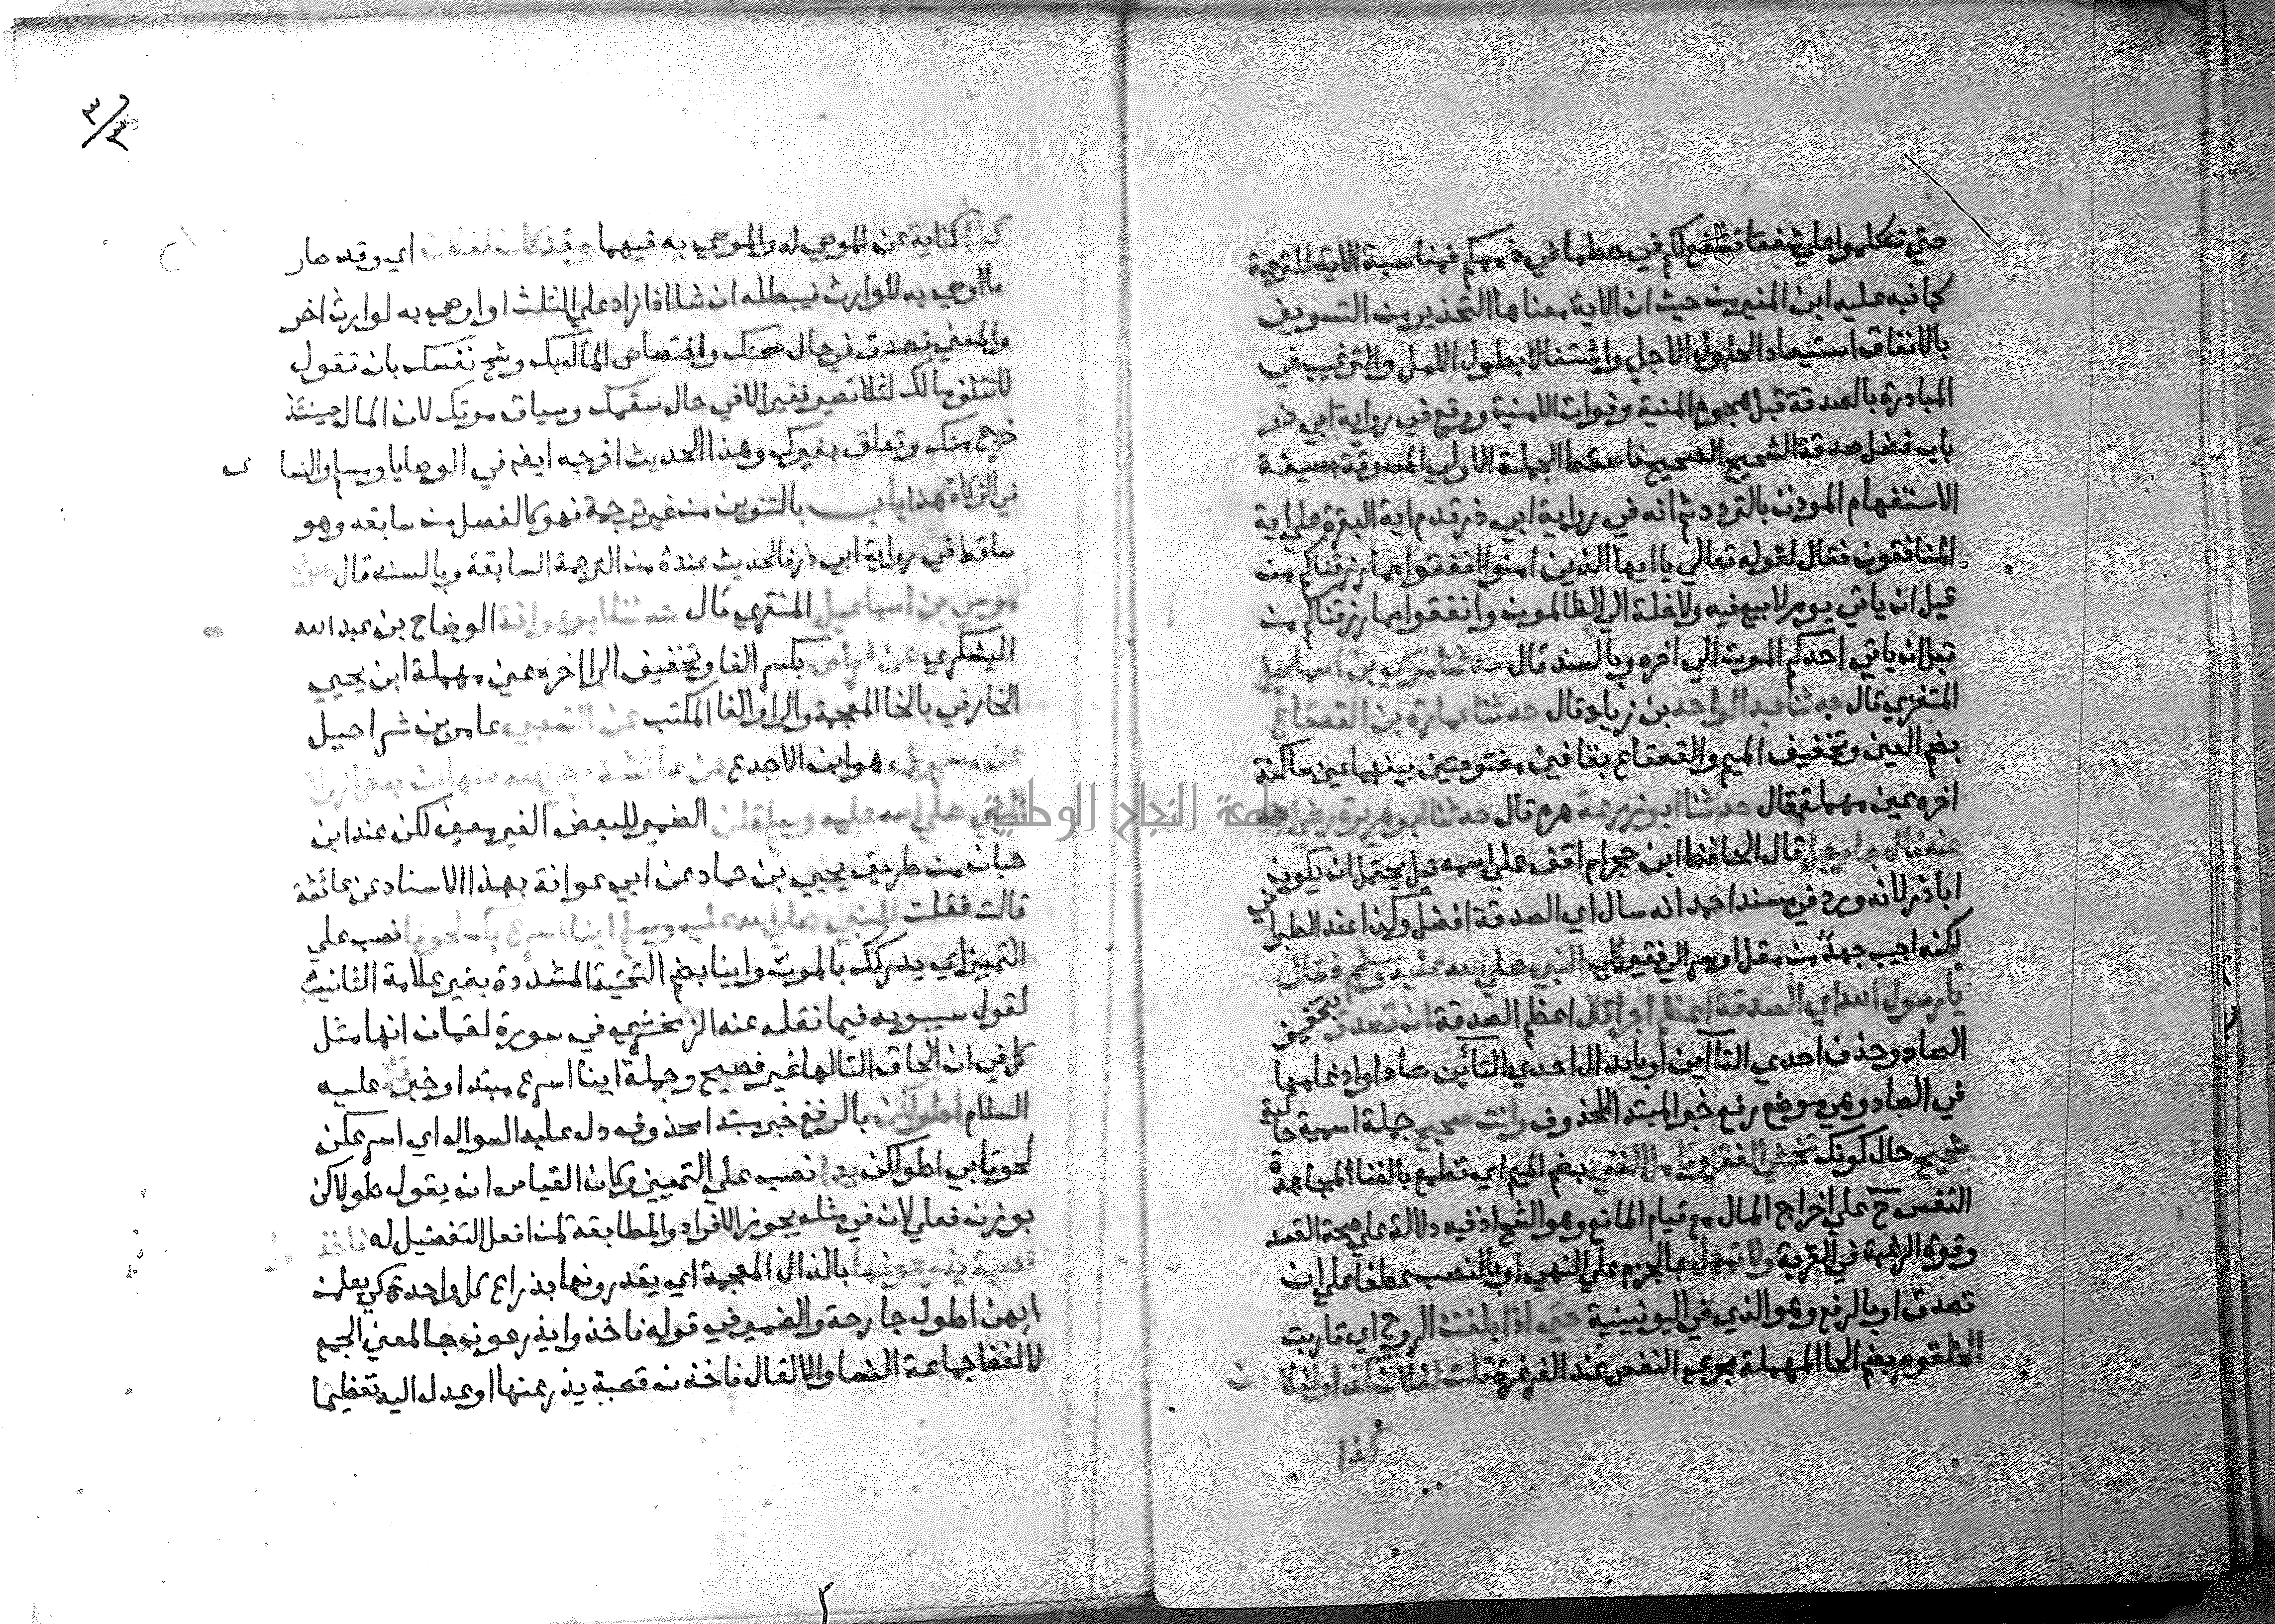 حتي تتكلموا علي شفعا تشفع لكم في حط ما في ذممكم فمناسبة الاية للترجمة
كما نبه عليه ابن المنير من حيث ان الاية معناها التحذير من التسويف
بالانفاق استبعادا لحلول الاجل واشتغالا بطول الامل والترغيب في
المبادرة بالصدقة قبل هجوم المنية وفوات الامنية ووقع في رواية ابي ذر
باب فضل صدقة الشحيح الصحيح فاسقط الجملة الاولي المسوقة بصيغة
الاستفهام الموذن بالتردد ثم انه في رواية ابي ذر قدم اية البقرة علي اية
المنافقون فقال لقوله تعالي يا ايها الذين امنوا انفقوا مما رزقناكم من
قبل ان ياتي يوم لا بيع فيه ولا خلة الي الظالمون وانفقوا مما رزقناكم من
قبل ان ياتي احدكم الموت الي اخره وبالسند قال حدثنا موسي بن اسماعيل
المنقري قال حدثنا عبد الواحد بن زياد قال حدثنا عمارة بن القعقاع
بضم العين وتخفيف الميم والقعقاع بقافين مفتوحتين بينهما عين ساكنة
اخره عين مهملة قال حدثنا ابو زرعة هرم قال حدثنا ابو هريرة رضي الله
عنه قال جا رجل قال الحافظ ابن حجر لم اقف علي اسمه قيل يحتمل ان يكون
ابا ذر لانه ورد في مسند احمد انه سال اي الصدقة افضل وكذا عند الطبراني
لكنه اجيب جهد من مقل او سر الي فقير الي النبي صلي الله عليه وسلم فقال
يا رسول الله اي الصدقة اعظم اجرا قال اعظم الصدقة ان تصدق بتخفيف
الصاد وحذف احدي التاأين او بابدال احدي التاأين صادا وادغامها
في الصاد وهي موضع رفع خبر المبتدا المحذوف وانت صحيح جملة اسمية حالية
شحيح حال كونك تخشي الفقر وتامل الغني بضم الميم اي تطمع بالغنا لمجاهدة
النفس ح علي اخراج المال مع قيام المانع وهو الشح اذ فيه دلالة علي صحة القصد
وقوة الرغبة في القربة ولا تمهل بالجزم علي النهي او بالنصب عطفا علي ان
تصدق او بالرفع وهو الذي في اليونينية حتي اذا بلغت الروح اي قاربت
الحلقوم بضم الحا المهملة مجري النفس عند الغرغرة قلت لفلان كذا ولفلان
كذا
كذا كناية عن الموصي له والموصي به فيهما وقد كان لفلان اي وقد صار
ما اوصي به للوارث فيبطله ان شا اذا زاد علي الثلث او اوصي به لوارث اخر
والمعني تصدق في حال صحتك واختصاص المال بك وشح نفسك بان تقول
لا تتلف مالك لئلا تصير فقيرا لا في حال سقمك وسياق موتك لان المال حينئذ
خرج منك وتعلق بغيرك وهذا الحديث اخرجه ايضا في الوصايا ومسلم والنساي
في الزكاة هذا باب بالتنوين من غير ترجمة فهو كالفصل من سابقه وهو
ساقط في رواية ابي ذر فالحديث عنده من الترجمة السابقة وبالسند قال حدثنا
موسي بن اسماعيل المنقري قال حدثنا ابو عوانة الوضاح بن عبد الله
اليشكري عن فراس بكسر الفا وتخفيف الرا اخره عين مهملة ابن يحيي
الخارفي بالخا المعجمة والرا والفا المكتب عن الشعبي عامر بن شراحيل
عن مسروق هو ابن الاجدع عن عائشة رضي الله عنها ان بعض ازواج
النبي صلي الله عليه وسلم قلن الضمير للبعض الغير معين لكن عند ابن
حبان من طريق يحيي بن حماد عن ابي عوانة بهذا الاسناد عن عائشة
قالت فقلت للنبي صلي الله عليه وسلم اينا اسرع بك لحوقا نصب علي
التمييز اي يدركك بالموت واينا بضم التحتية المشددة بغير علامة التانيث
لقول سيبويه فيما نقله عنه الزمخشري في سورة لقمان انها مثل
كل في ان الحاق التا لها غير فصيح وجملة اينا اسرع مبتدا وخبر قال عليه
السلام اطولكن بالرفع خبر مبتدا محذوف دل عليه السوال اي اسرعكن
لحوقا بي اطولكن يدا نصب علي التمييز وكان القياس ان يقول طولاكن
بوزن فعلي لان في مثله يجوز الافراد والمطابقة لمن افعل التفضيل له فاخذوا
قصبة يذرعونها بالذال المعجمة اي يقدرونها بذراع كل واحدة كي يعلمن
ايهن اطول جارحة والضمير في قوله فاخذوا يذرعونه جا لمعني الجمع
لا لفظ جماعة النسا والا لقال فاخذن قصبة يذرعنها او عدل اليه تعظيما
جامعة النجاح الوطنية